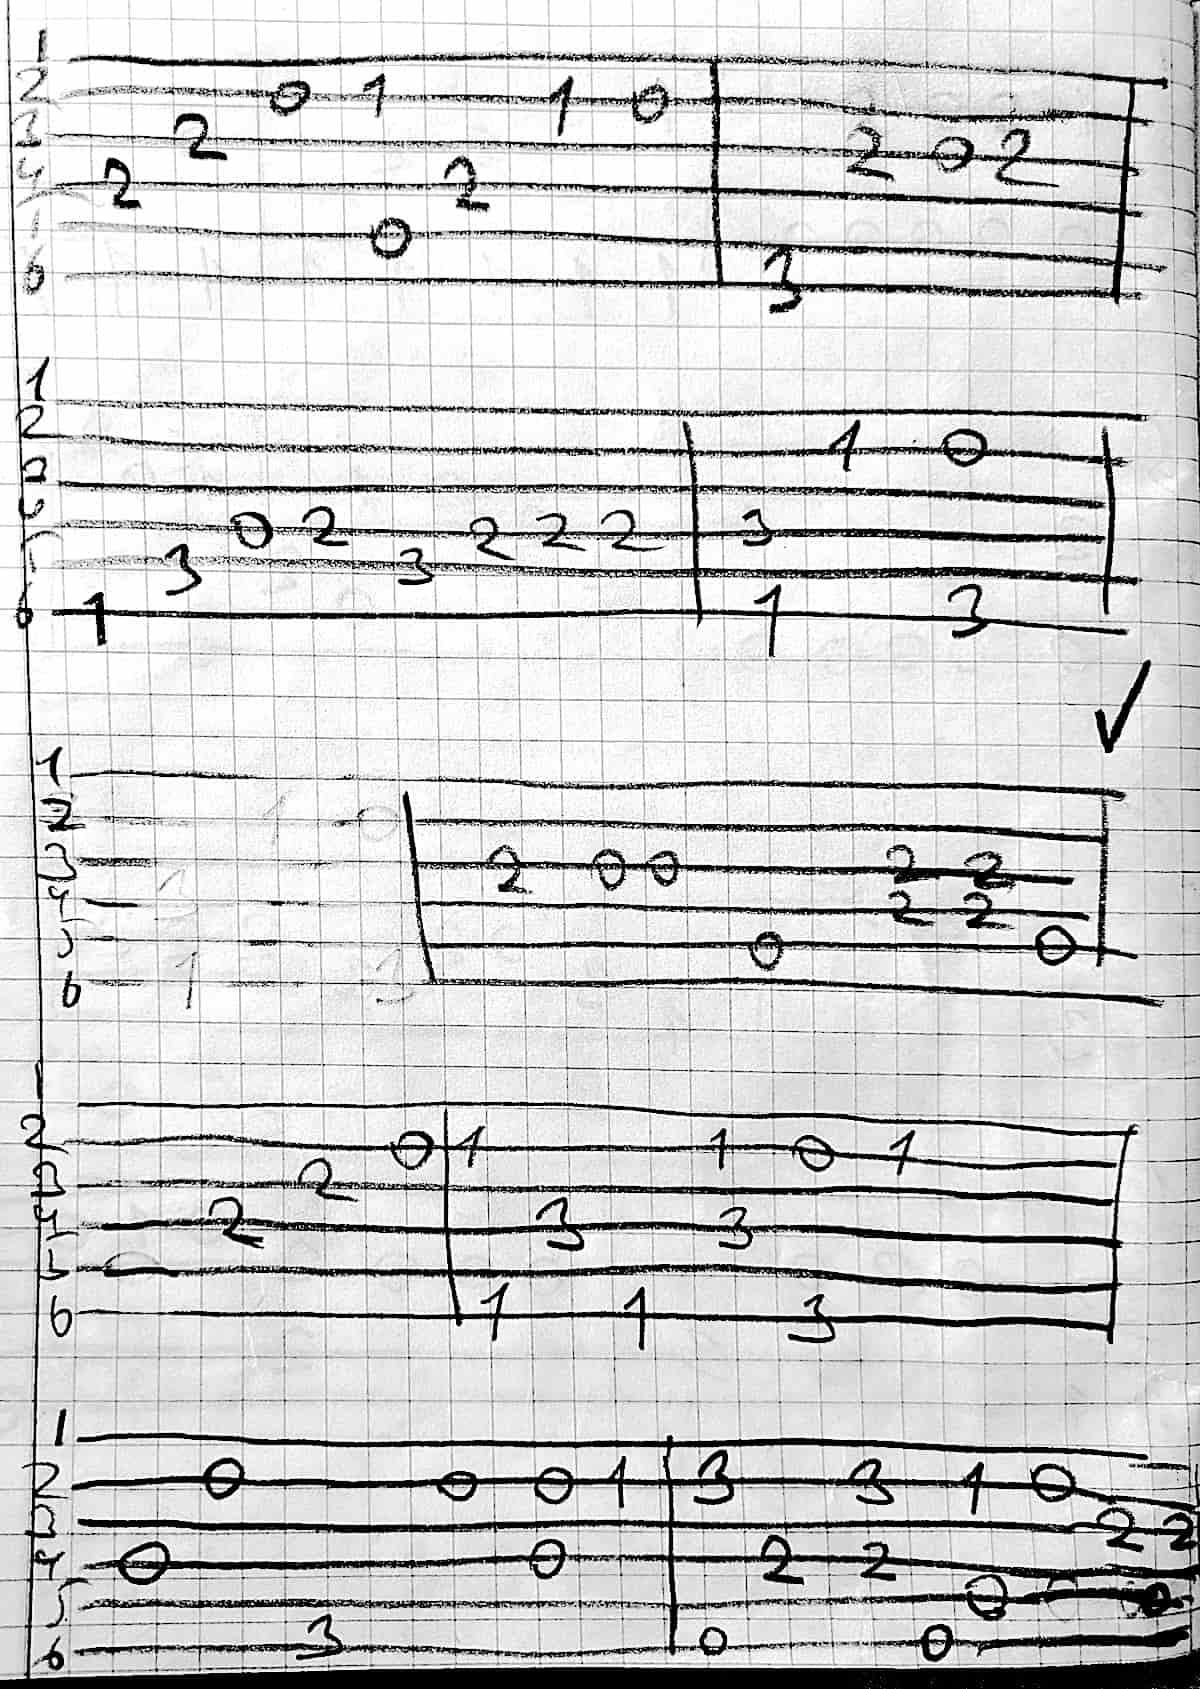 1
2 0 1 1 0
3 2 2 0 2
4 2 2
0
6 3
1
2 1 0
0 2 2 2 2 3
3 3
6 1 1 3
✓
1
2 1 0
3 2 0 0 2 2
4 3 2 2
5 0 0
6 1 3
1
2 0 1 1 0 1
3 2
4 2 3 3
5
6 1 1 3
1
2 0 0 0 1 3 3 1 0
3 2 2
4 0 0 2 2
5 0
6 3 0 0